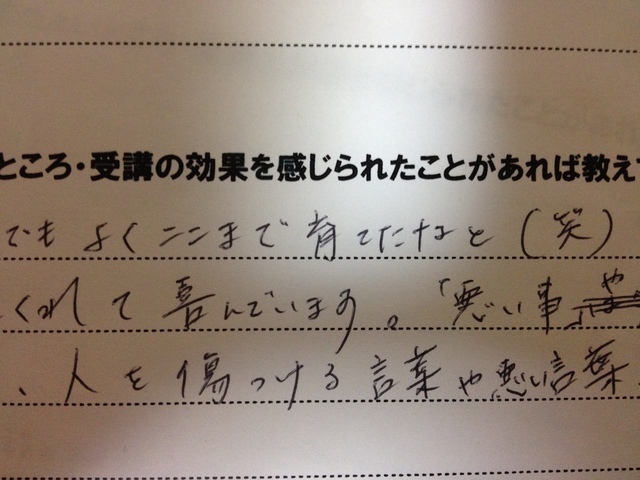 ところ・受講の効果を感じられたことがあれば教えて
でもよくここまで育てたなと(笑)
くれて喜んでいます。「悪い事」や
、人を傷つける言葉や悪い言葉